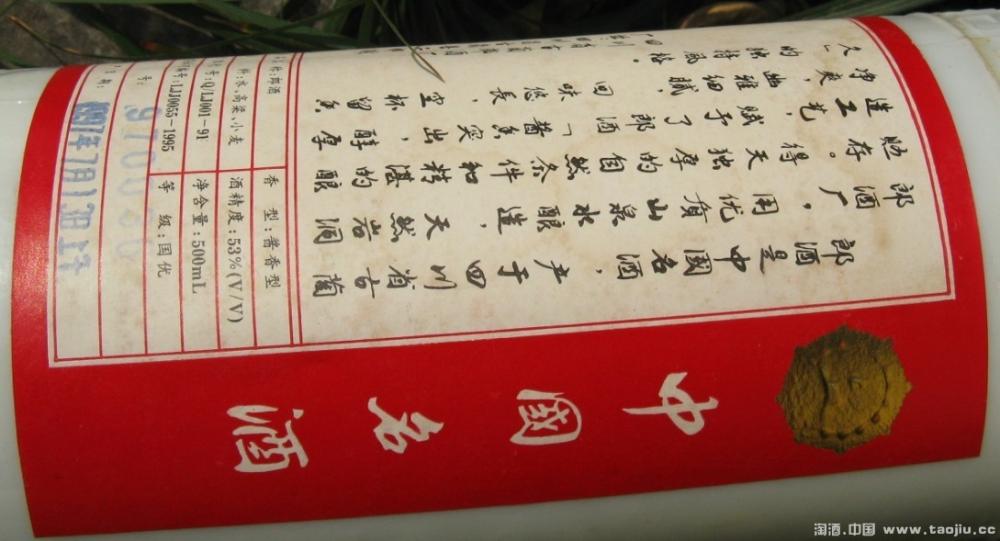 中國名酒
郎酒是中國名酒，产于四川省古蔺
郎酒厂，用优质山泉水酿造，天然岩洞
贮存。得天独厚的自然条件和精湛的酿
造工艺，赋予了郎酒「酱香突出，醇厚
净爽，幽雅细腻，回味悠长，空杯留香
久」的独特风格。
称:郎酒 香型:酱香型
料:水、高粱、小麦 酒精度:53%(V/V)
号:Q/LJ001-91 净含量:500mL
号:LJJ0055-1995 等级:国优
号:
日期: 1997年7月13日
淘酒.中国 www.taojiu.cc